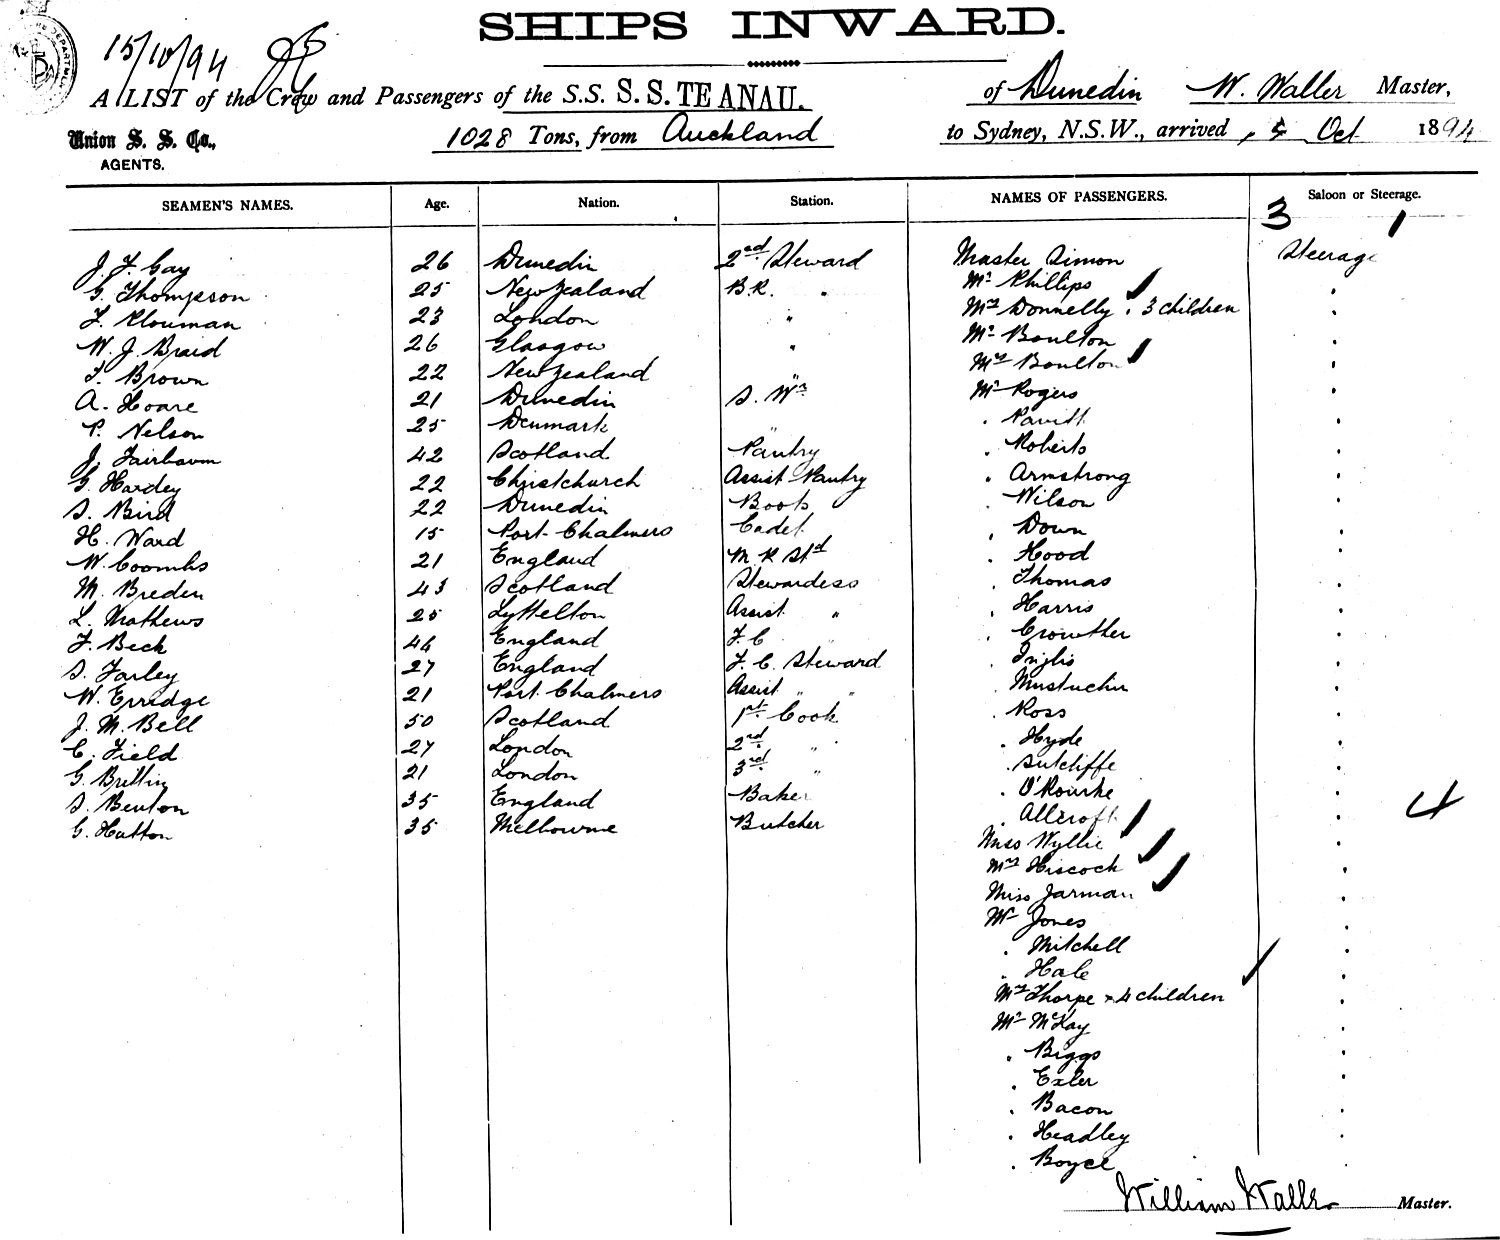 SHIPS INWARD.
15/10/94
A LIST of the Crew and Passengers of the S.S. S.S. TE ANAU. of Dunedin W. Waller Master,
Union S. S. Co., 1028 Tons, from Auckland to Sydney, N.S.W., arrived 5 Oct 1894
AGENTS.
SEAMEN'S NAMES. Age. Nation. Station. NAMES OF PASSENGERS. Saloon or Steerage.
3 1
J. F. Gay 26 Dunedin 2nd Steward Master Simon Steerage
G. Thompson 25 New Zealand B.R. " Mr Phillips "
F. Plouman 23 London " Mrs Donnelly & 3 children "
W. J. Braid 26 Glasgow " Mr Boulton "
F. Brown 22 New Zealand " Mrs Boulton "
A. Hoare 21 Dunedin S. Wr Mr Rogers "
P. Nelson 25 Denmark " " Pavitt "
J. Fairbairn 42 Scotland Pantry " Roberts "
G. Hardey 22 Christchurch Assist Pantry " Armstrong "
S. Bird 22 Dunedin Boots " Wilson "
H. Ward 15 Port Chalmers Cadet " Down "
W. Coombs 21 England M R Std " Hood "
M. Breden 43 Scotland Stewardess " Thomas "
L. Mathews 25 Lyttelton Assist " " Harris "
F. Beck 46 England F. C " " Crowther "
S. Farley 27 England F. C. Steward " Inglis "
W. Erridge 21 Port Chalmers Assist " " "
J. M. Bell 50 Scotland 1st Cook " Ross "
C. Field 27 London 2nd " " Hyde "
G. Brittin 21 London 3rd " " Sutcliffe "
S. Benton 35 England Baker " O'Rourke " 4
G. Hutton 35 Melbourne Butcher " Allcroft "
Miss Wyllie "
Mrs Hiscock "
Miss Jarman "
Mr Jones "
" Mitchell "
" Hale "
Mrs Thorpe & 4 children "
Mr McKay "
" Biggs "
" Exler "
" Bacon "
" Headley "
" Boyce "
William Waller Master.